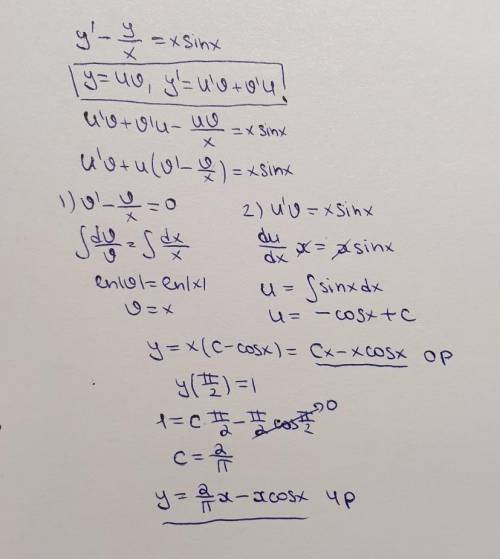 y' - y/x = x sinx
y = uv, y' = u'v + v'u !
u'v + v'u - uv/x = x sinx
u'v + u(v' - v/x) = x sinx
1) v' - v/x = 0
∫ dv/v = ∫ dx/x
ln|v| = ln|x|
v = x
2) u'v = x sinx
du/dx x = x sinx
u = ∫ sinx dx
u = -cosx + c
y = x(c - cosx) = cx - x cosx ОР
y(π/2) = 1
1 = c π/2 - π/2 cos π/2 → 0
c = 2/π
y = 2/π x - x cosx ЧР